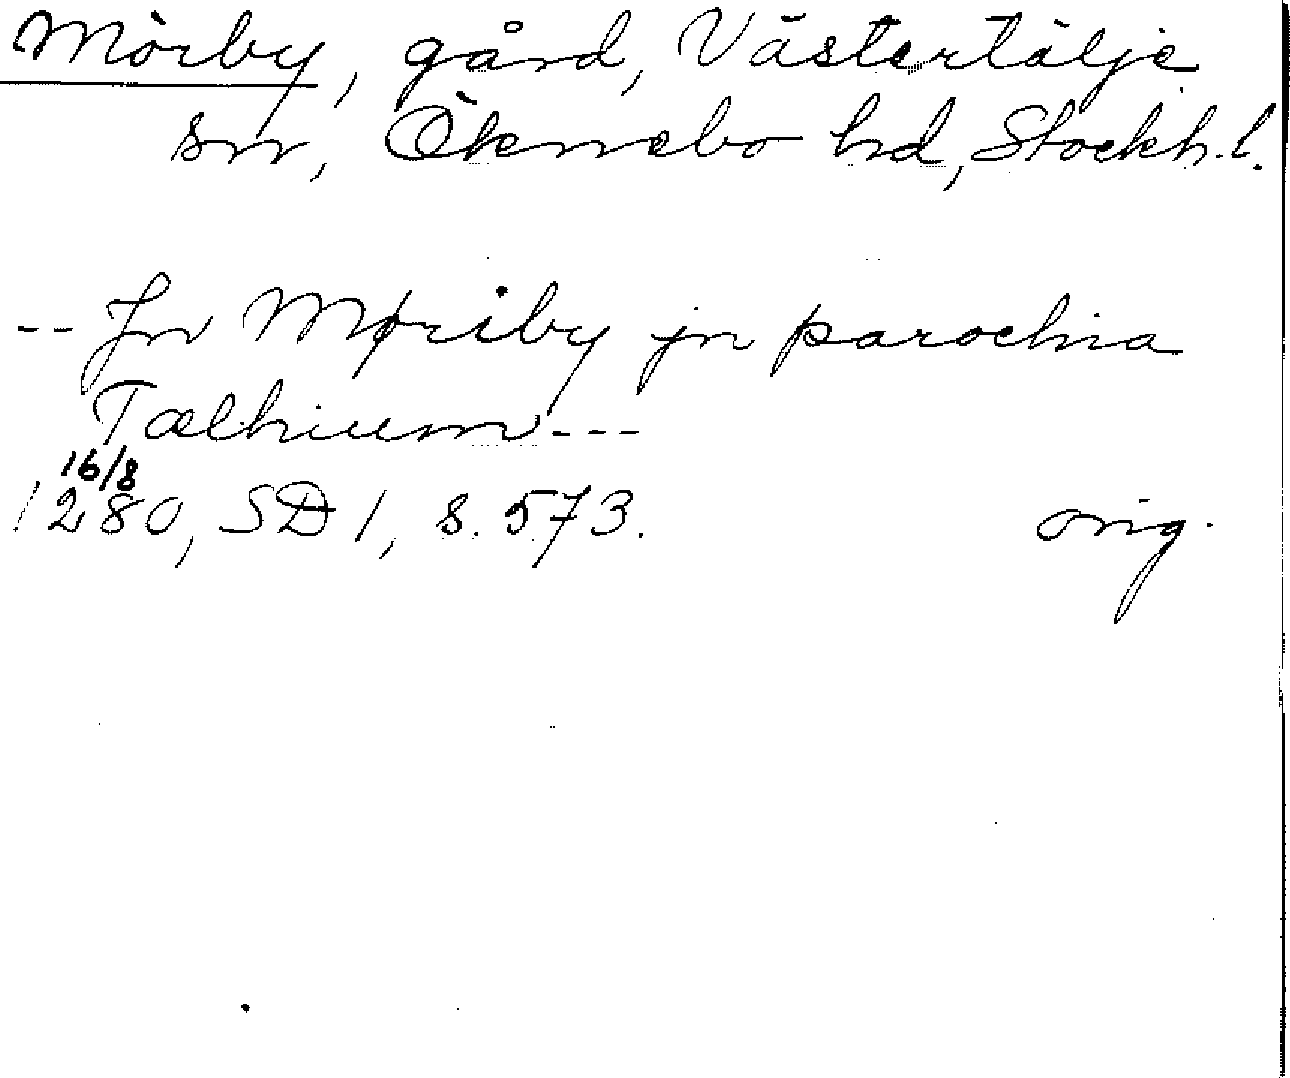 Mörby, gård, Västertälje
sn, Öknebo hd, Stockh. l.
-- Jn Møriby jn parochia
Tælhium ---
16/8
1280, SD 1, s. 573. orig.